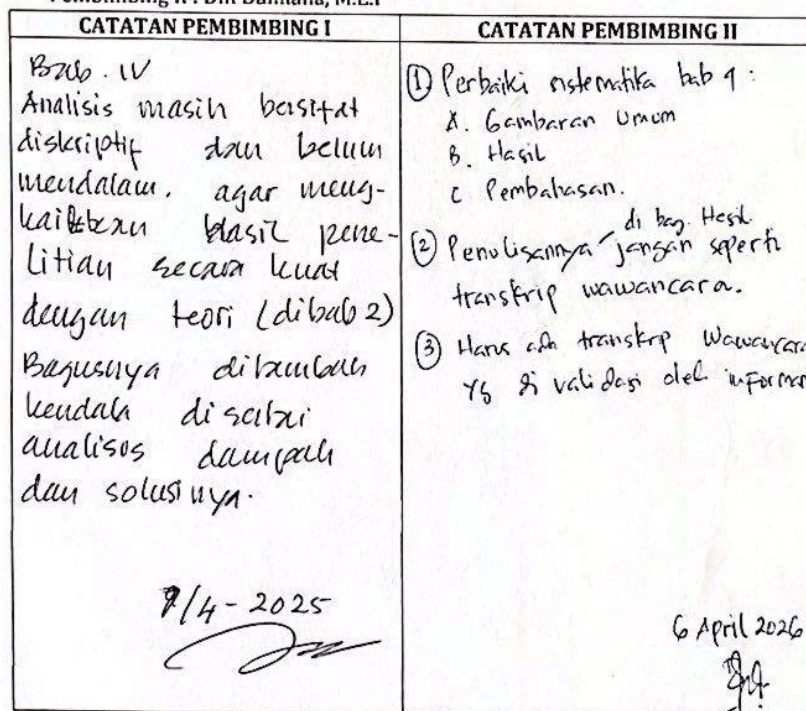 Pembimbing II : Din Daimana, M.E.I
CATATAN PEMBIMBING I
Bab. IV
Analisis masih bersifat
diskriptif dan belum
mendalam. agar meng-
kaitkan hasil pene-
litian secara kuat
dengan teori (dibab 2)
Bagusnya ditambah
kendala disertai
analisos dampak
dan solusinya.
/4-2025
CATATAN PEMBIMBING II
① Perbaiki sistematika bab 4 :
A. Gambaran Umum
B. Hasil
C Pembahasan.
di bag. Hasil.
② Penulisannya jangan seperti
transkrip wawancara.
③ Harus ada transkrip Wawancara
yg di validasi oleh informan
6 April 2026